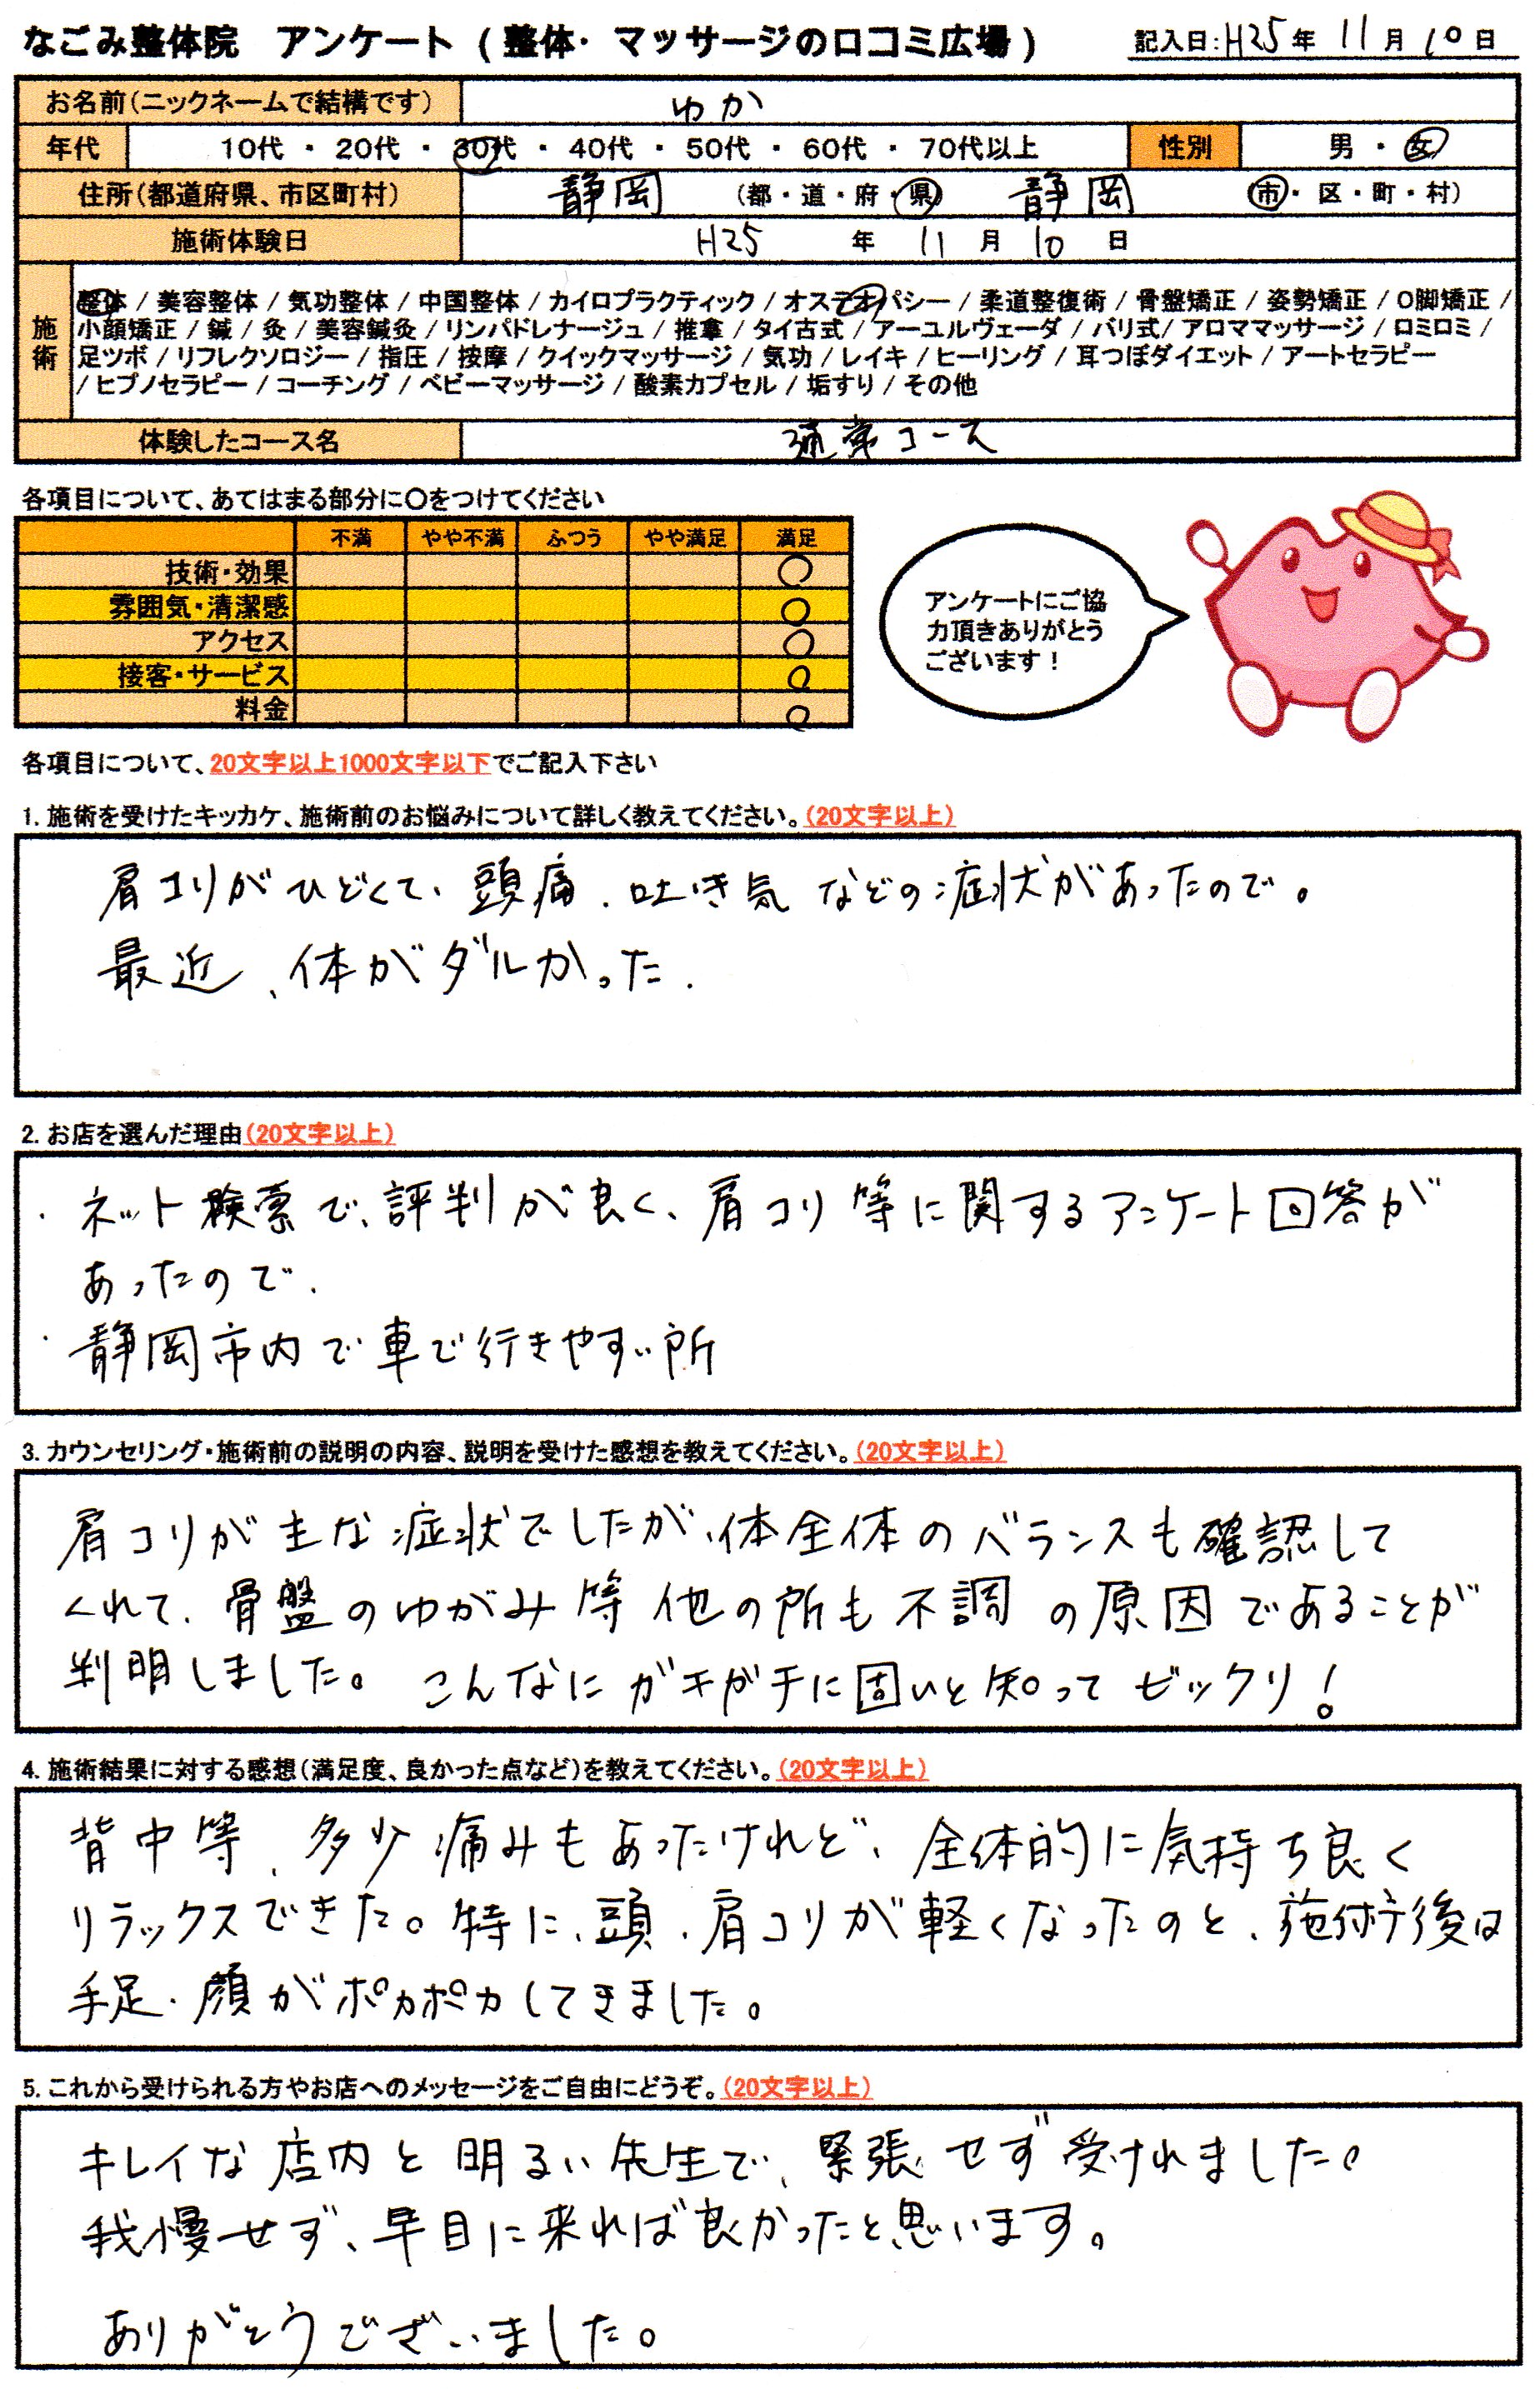 なごみ整体院 アンケート ( 整体・ マッサージの口コミ広場 ) 記入日:H25年 11月 10日
お名前(ニックネームで結構です) ゆか
年代 10代 ・ 20代 ・ 30代 ・ 40代 ・ 50代 ・ 60代 ・ 70代以上 性別 男 ・ 女
住所(都道府県、市区町村) 静岡 (都・道・府・県) 静岡 (市・区・町・村)
施術体験日 H25 年 11 月 10 日
施術
整体 / 美容整体 / 気功整体 / 中国整体 / カイロプラクティック / オステオパシー / 柔道整復術 / 骨盤矯正 / 姿勢矯正 / O脚矯正 /
小顔矯正 / 鍼 / 灸 / 美容鍼灸 / リンパドレナージュ / 推拿 / タイ古式 / アーユルヴェーダ / バリ式/ アロママッサージ / ロミロミ /
足ツボ / リフレクソロジー / 指圧 / 按摩 / クイックマッサージ / 気功 / レイキ / ヒーリング / 耳つぼダイエット / アートセラピー
/ ヒプノセラピー / コーチング / ベビーマッサージ / 酸素カプセル / 垢すり / その他
体験したコース名 通常コース
各項目について、あてはまる部分に〇をつけてください
不満 やや不満 ふつう やや満足 満足
技術・効果 〇
雰囲気・清潔感 〇
アクセス 〇
接客・サービス 〇
料金 〇
アンケートにご協
力頂きありがとう
ございます！
各項目について、20文字以上1000文字以下でご記入下さい
1. 施術を受けたキッカケ、施術前のお悩みについて詳しく教えてください。(20文字以上)
肩コリがひどくて、頭痛、吐き気などの症状があったので。
最近、体がダルかった.
2. お店を選んだ理由(20文字以上)
・ネット検索で、評判が良く、肩コリ等に関するアンケート回答が
あったので.
・静岡市内で車で行きやすい所
3. カウンセリング・施術前の説明の内容、説明を受けた感想を教えてください。(20文字以上)
肩コリが主な症状でしたが、体全体のバランスも確認して
くれて、骨盤のゆがみ等他の所も不調の原因であることが
判明しました。こんなにガチガチに固いと知ってビックリ！
4. 施術結果に対する感想(満足度、良かった点など)を教えてください。(20文字以上)
背中等、多少痛みもあったけれど、全体的に気持ち良く
リラックスできた。特に、頭、肩コリが軽くなったのと、施術後は
手足・顔がポカポカしてきました。
5. これから受けられる方やお店へのメッセージをご自由にどうぞ。(20文字以上)
キレイな店内と明るい先生で、緊張せず受けれました。
我慢せず、早目に来れば良かったと思います。
ありがとうございました。